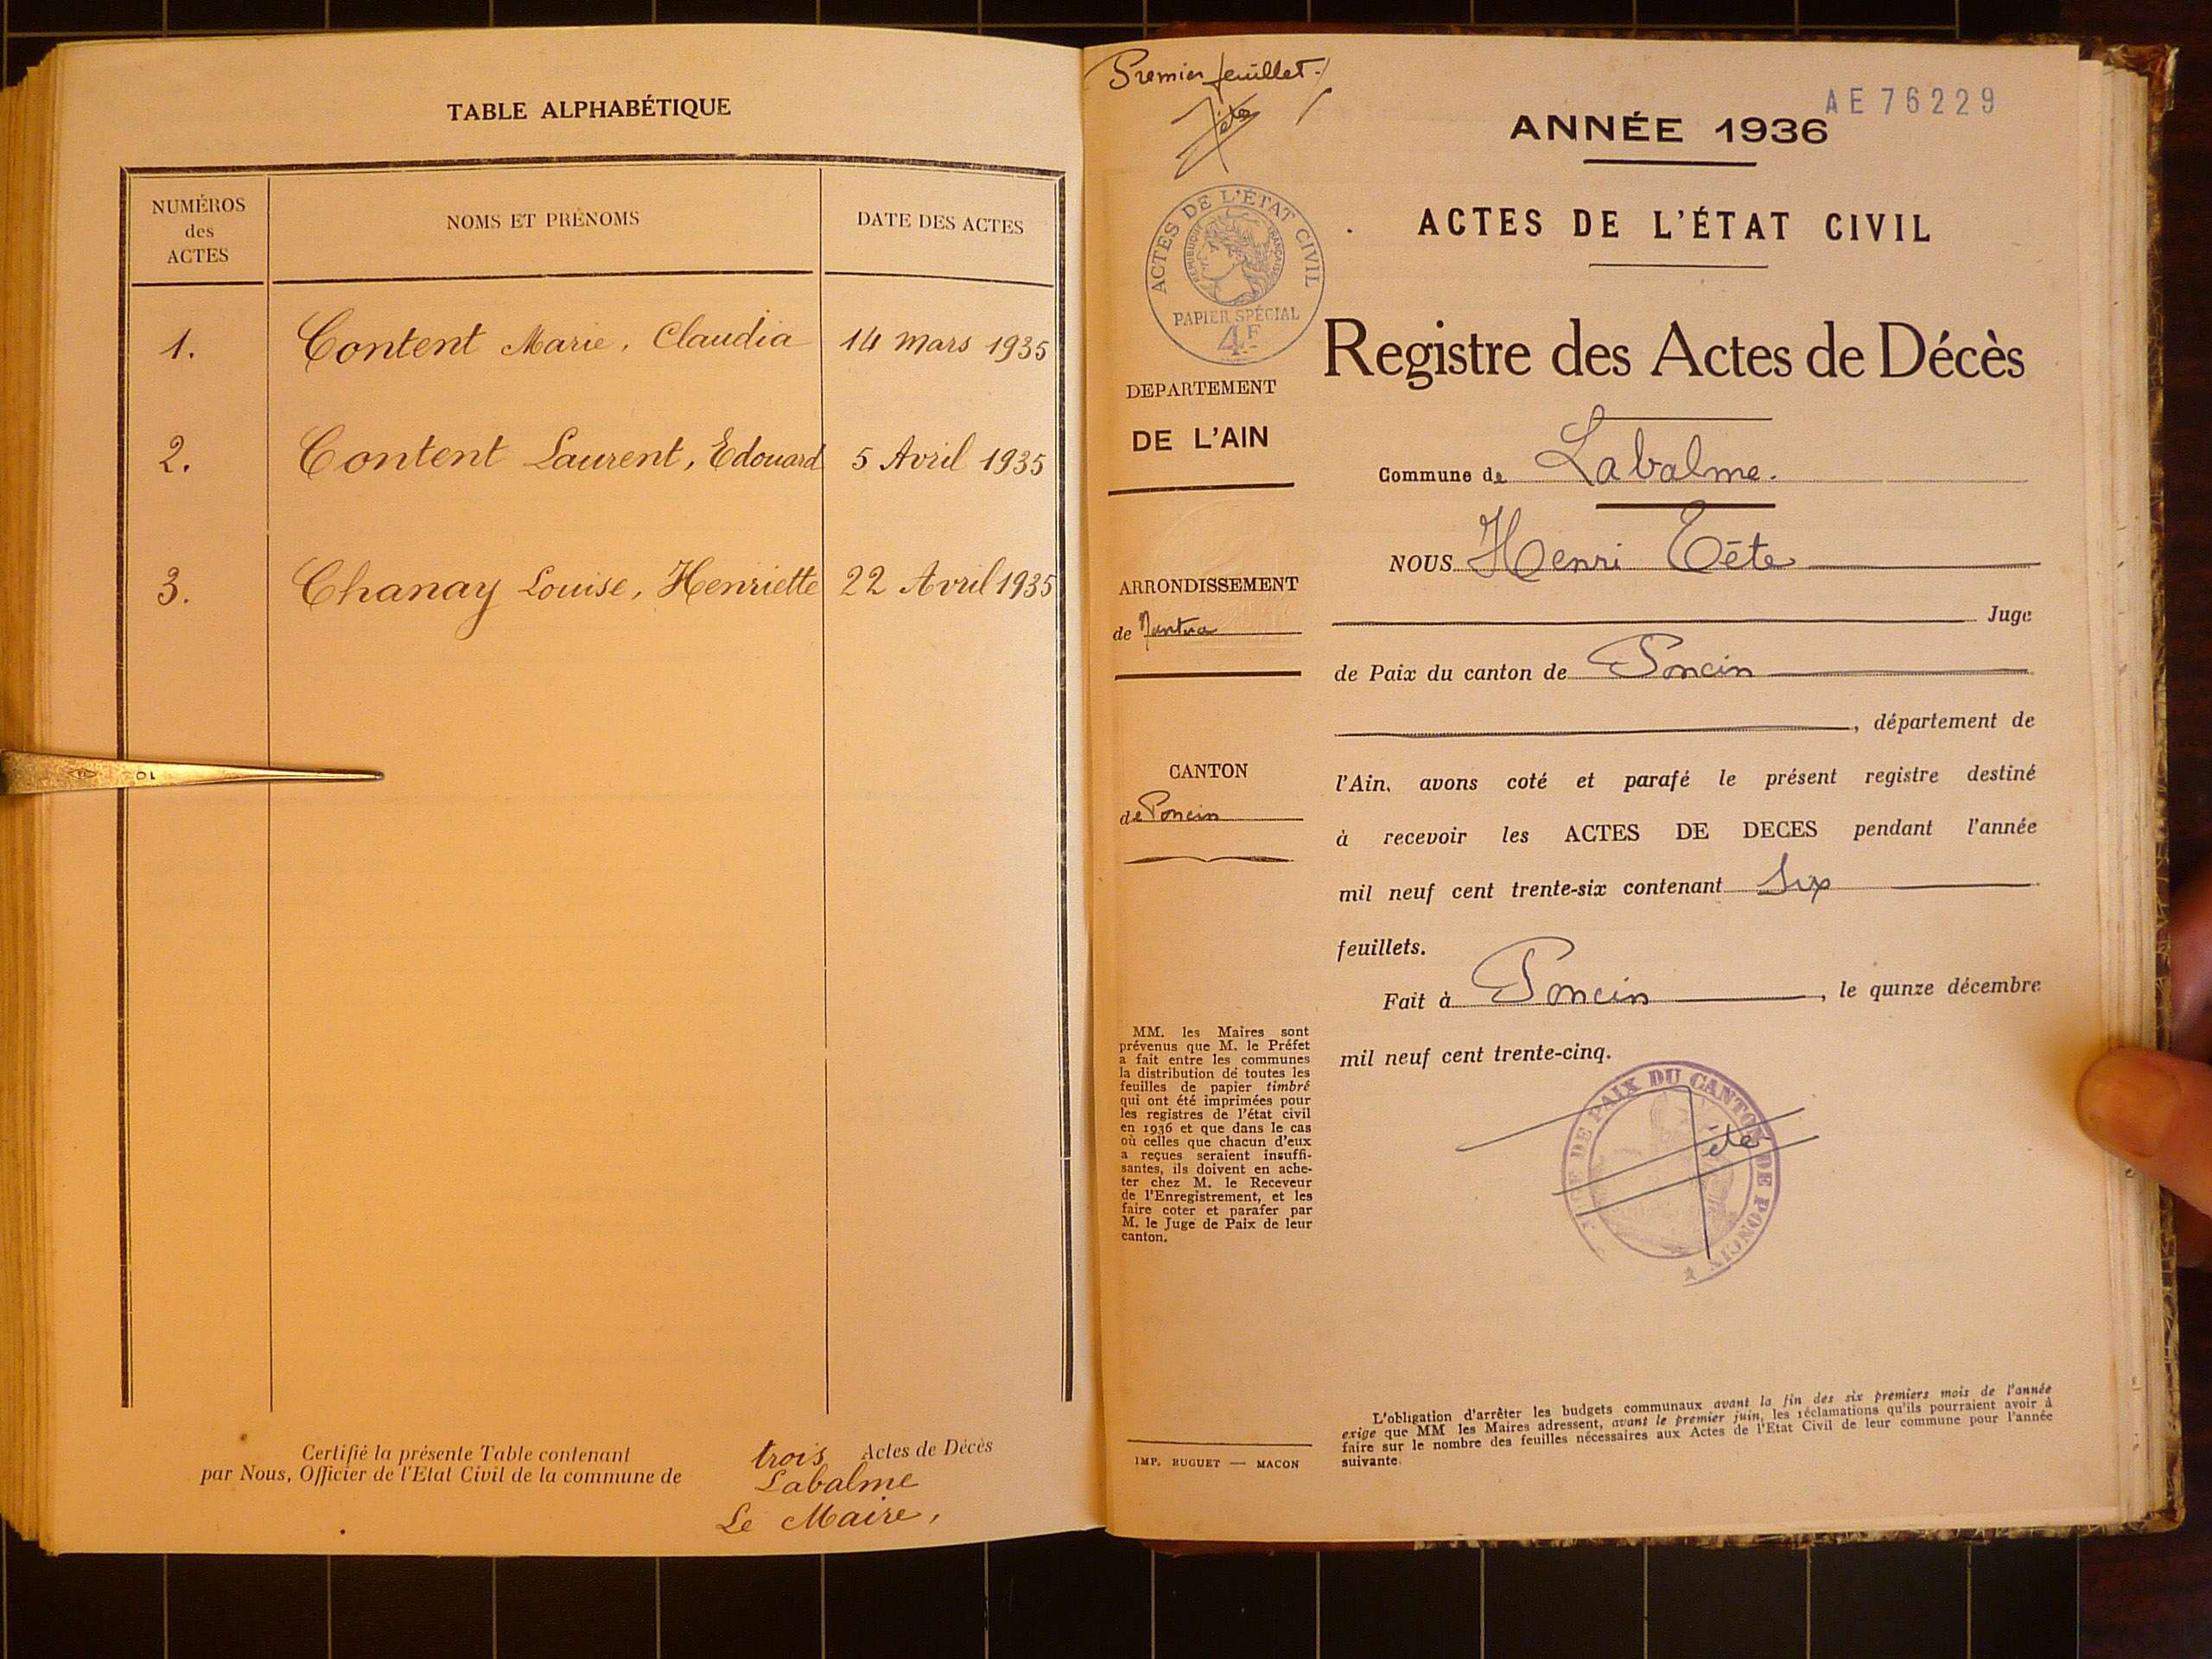 TABLE ALPHABÉTIQUE
NUMÉROS
des
ACTES
NOMS ET PRÉNOMS
DATE DES ACTES
1. Content Marie, Claudia 14 mars 1935
2. Content Laurent, Edouard 5 Avril 1935
3. Chanay Louise, Henriette 22 Avril 1935
Certifié la présente Table contenant trois Actes de Décès
par Nous, Officier de l'Etat Civil de la commune de Labalme
Le Maire,
Premier feuillet.
Tête
AE76229
ANNÉE 1936
ACTES DE L'ÉTAT CIVIL
ACTES DE L'ÉTAT CIVIL
RÉPUBLIQUE FRANÇAISE
PAPIER SPÉCIAL
4F
Registre des Actes de Décès
DEPARTEMENT
DE L'AIN
ARRONDISSEMENT
de Nantua
CANTON
de Poncin
MM. les Maires sont
prévenus que M. le Préfet
a fait entre les communes
la distribution de toutes les
feuilles de papier timbré
qui ont été imprimées pour
les registres de l'état civil
en 1936 et que dans le cas
où celles que chacun d'eux
a reçues seraient insuffi-
santes, ils doivent en ache-
ter chez M. le Receveur
de l'Enregistrement, et les
faire coter et parafer par
M. le Juge de Paix de leur
canton.
IMP. BUGUET — MACON
Commune de Labalme.
NOUS Henri Tête
Juge
de Paix du canton de Poncin
, département de
l'Ain, avons coté et parafé le présent registre destiné
à recevoir les ACTES DE DECES pendant l'année
mil neuf cent trente-six contenant Six
feuillets.
Fait à Poncin, le quinze décembre
mil neuf cent trente-cinq.
DE PAIX DU CANTON DE PONCIN
Tête
L'obligation d'arrêter les budgets communaux avant la fin des six premiers mois de l'année
exige que MM les Maires adressent, avant le premier juin, les réclamations qu'ils pourraient avoir à
faire sur le nombre des feuilles nécessaires aux Actes de l'Etat Civil de leur commune pour l'année
suivante.